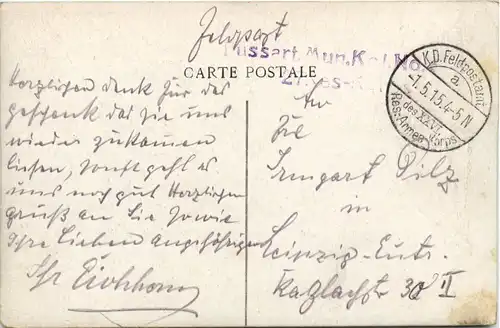 Feldpost
Fussart. Mun. Kol. No
CARTE POSTALE
27. Res-
K.D. Feldpostamt
a.
-7.5.15.4-5 N
des XXVII.
Res.-Armee-Korps
Herzlichen dank für das
geschenk das Sie uns
wieder zukommen
liesen, Sonst geht es
uns noch gut Herzlichen
gruß an Sie Sowie
Ihre Lieben angehörigen
Ihr Eichhorn
An
Frl
Irmgart Pilz
in
Leipzig-Eutr.
30 II